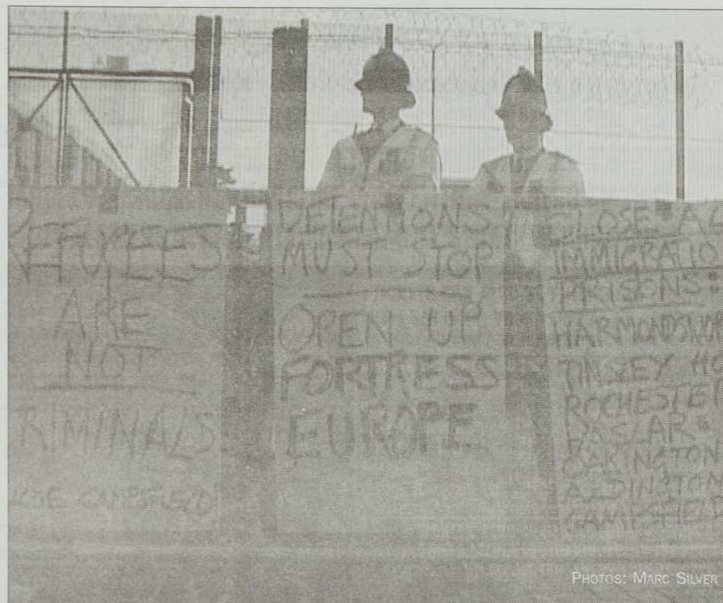 REFUGEES
ARE
NOT
CRIMINALS
CLOSE CAMPSFIELD
DETENTIONS
MUST STOP
OPEN UP
FORTRESS
EUROPE
CLOSE AL
IMMIGRATIO
PRISONS:
HARMONDSWOR
TINSLEY HO
ROCHESTE
HASLAR
OAKINGTON
ALDINGTON
CAMPSFIELD
PHOTOS: MARC SILVER